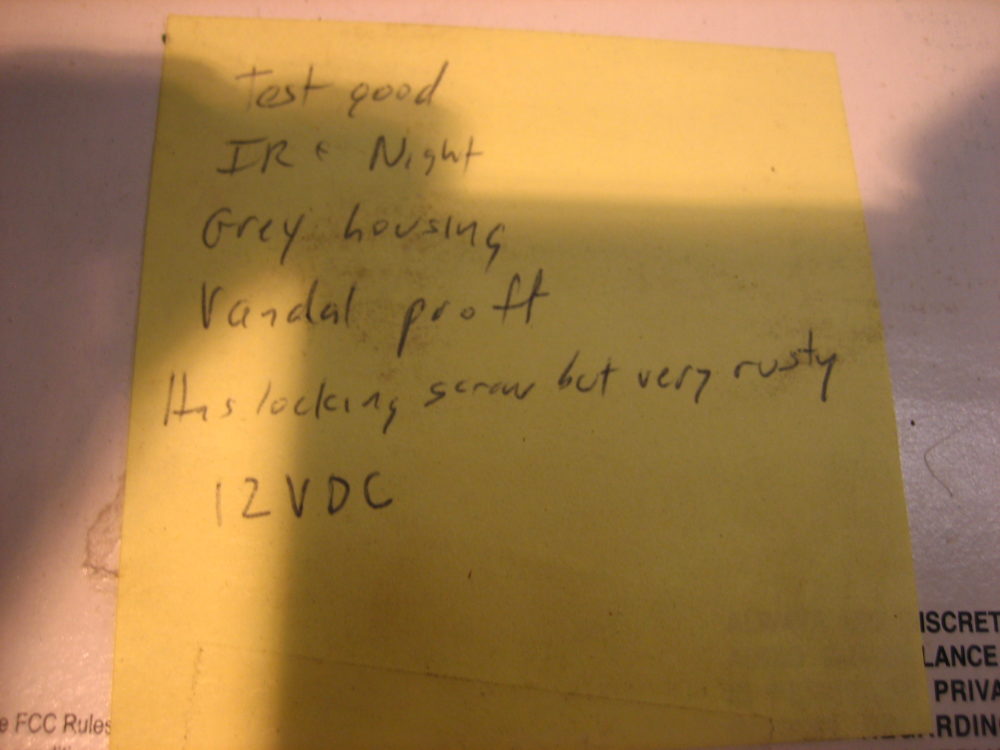 Test good
IR & Night
Grey housing
Vandal profft
Has locking screw but very rusty
12VDC
ISCRET
LANCE
PRIVA
GARDIN
e FCC Rules